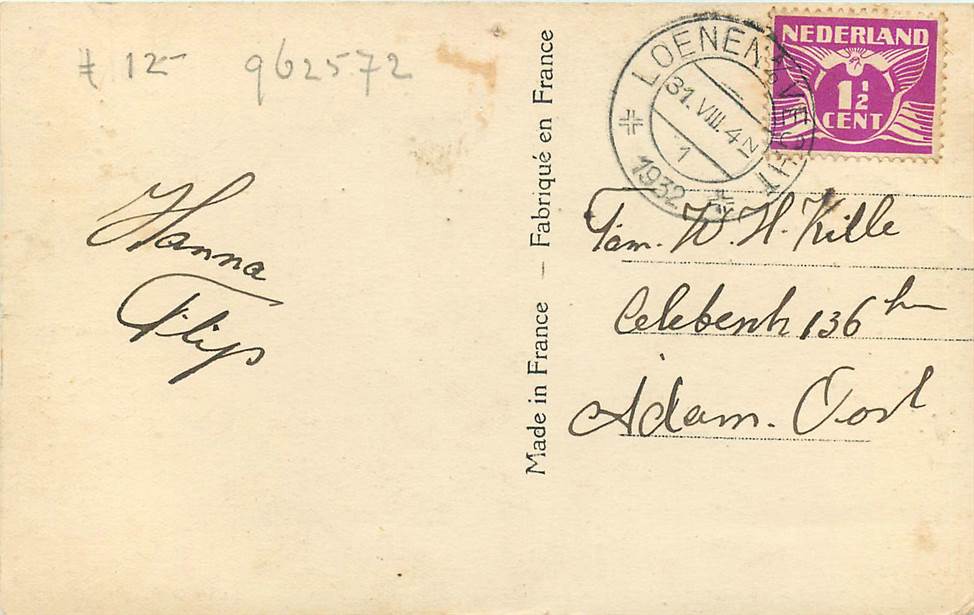 # 12- 962572
Hanna
Flip
Made in France — Fabriqué en France
LOENEN A/D VECHT
31.VIII.4 N
1
1932
NEDERLAND
1½
CENT
Fam. W. H. Kille
136 hs
Adam. Oost